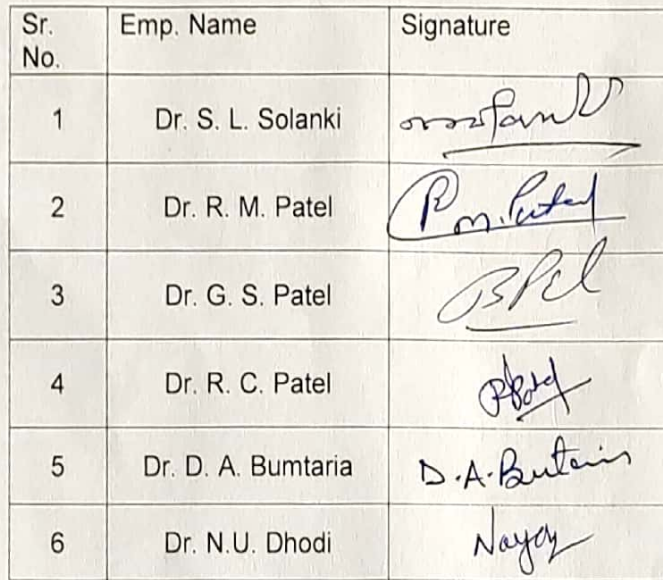 Sr. No. Emp. Name Signature
1 Dr. S. L. Solanki
2 Dr. R. M. Patel R M. Patel
3 Dr. G. S. Patel
4 Dr. R. C. Patel
5 Dr. D. A. Bumtaria D.A.
6 Dr. N.U. Dhodi